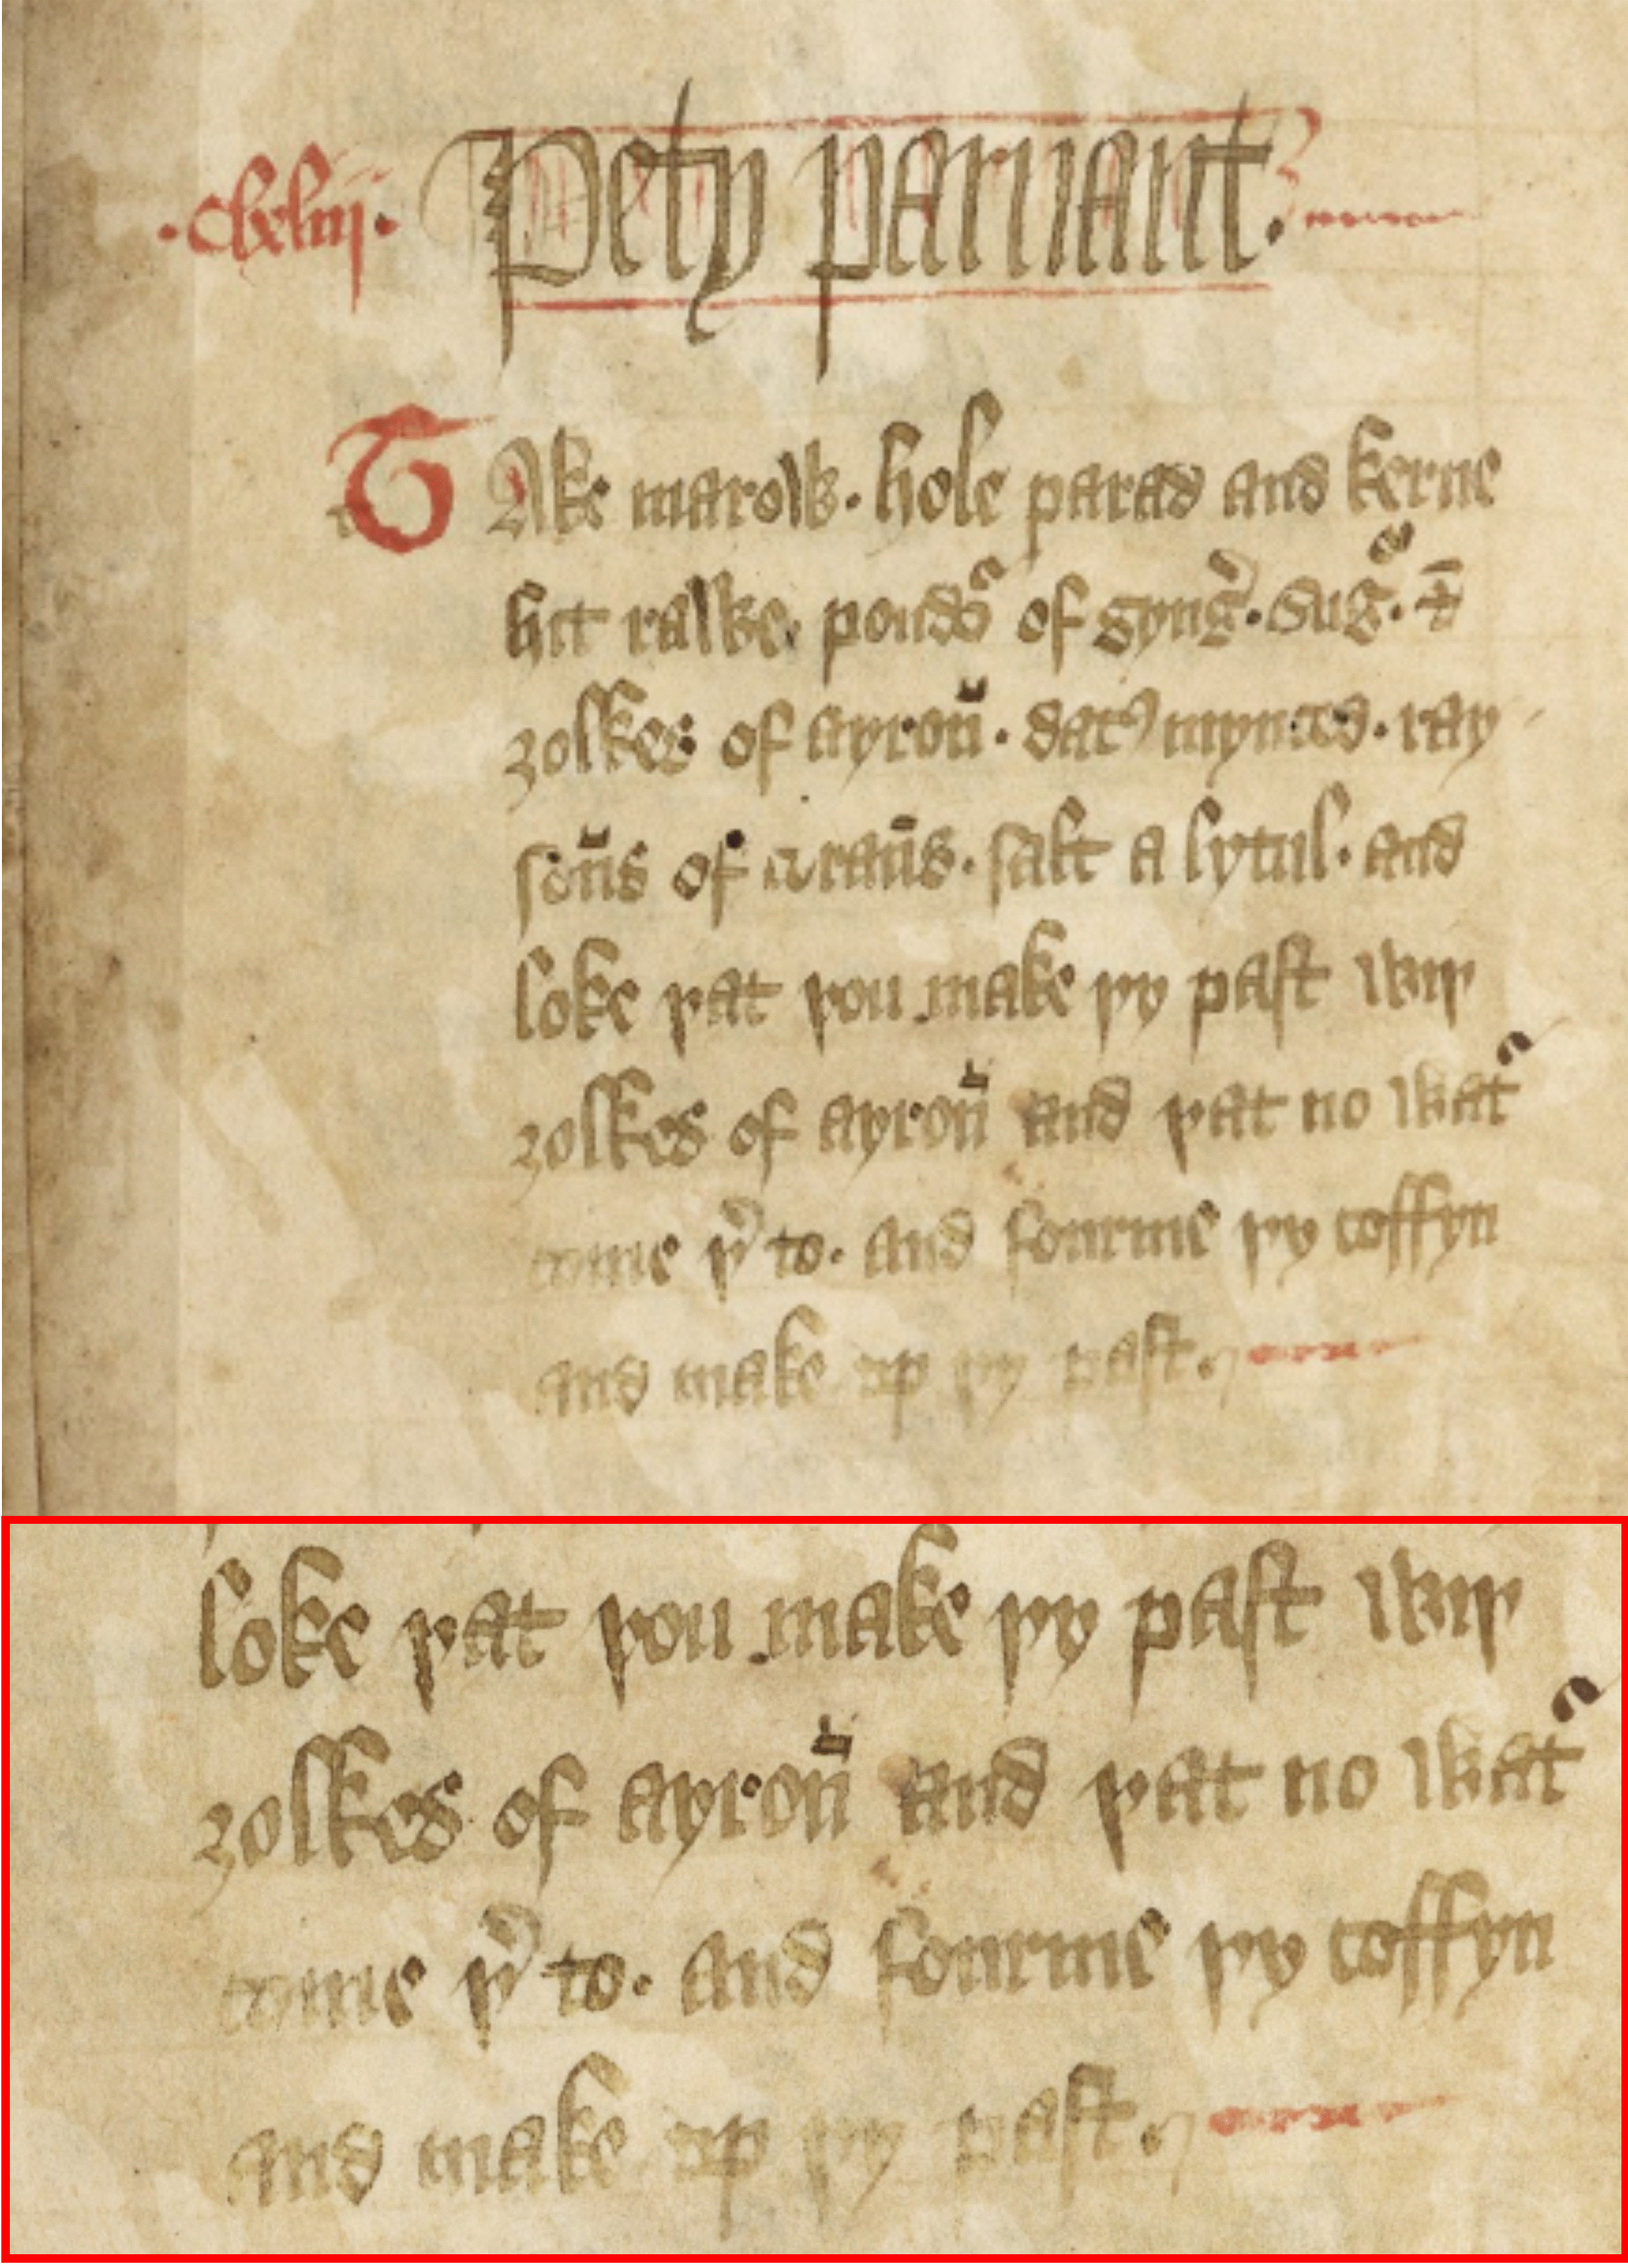 Pety paruant.
TAke marow. hole parad and kerue
hit rawe. poudꝰ of gyng̉. Sug̉. ⁊
ȝolkes of ayron̄. dat᷒ mynced. ray
son̄s of coran̄s. salt a lytul. and
loke þat þou make þy past wiþ
ȝolkes of ayron̄ and þat no wat̉
come þ̉ to. and fourme þy coffyn
and make up þy past.
loke þat þou make þy past wiþ
ȝolkes of ayron̄ and þat no wat̉
come þ̉ to. and fourme þy coffyn
and make up þy past.